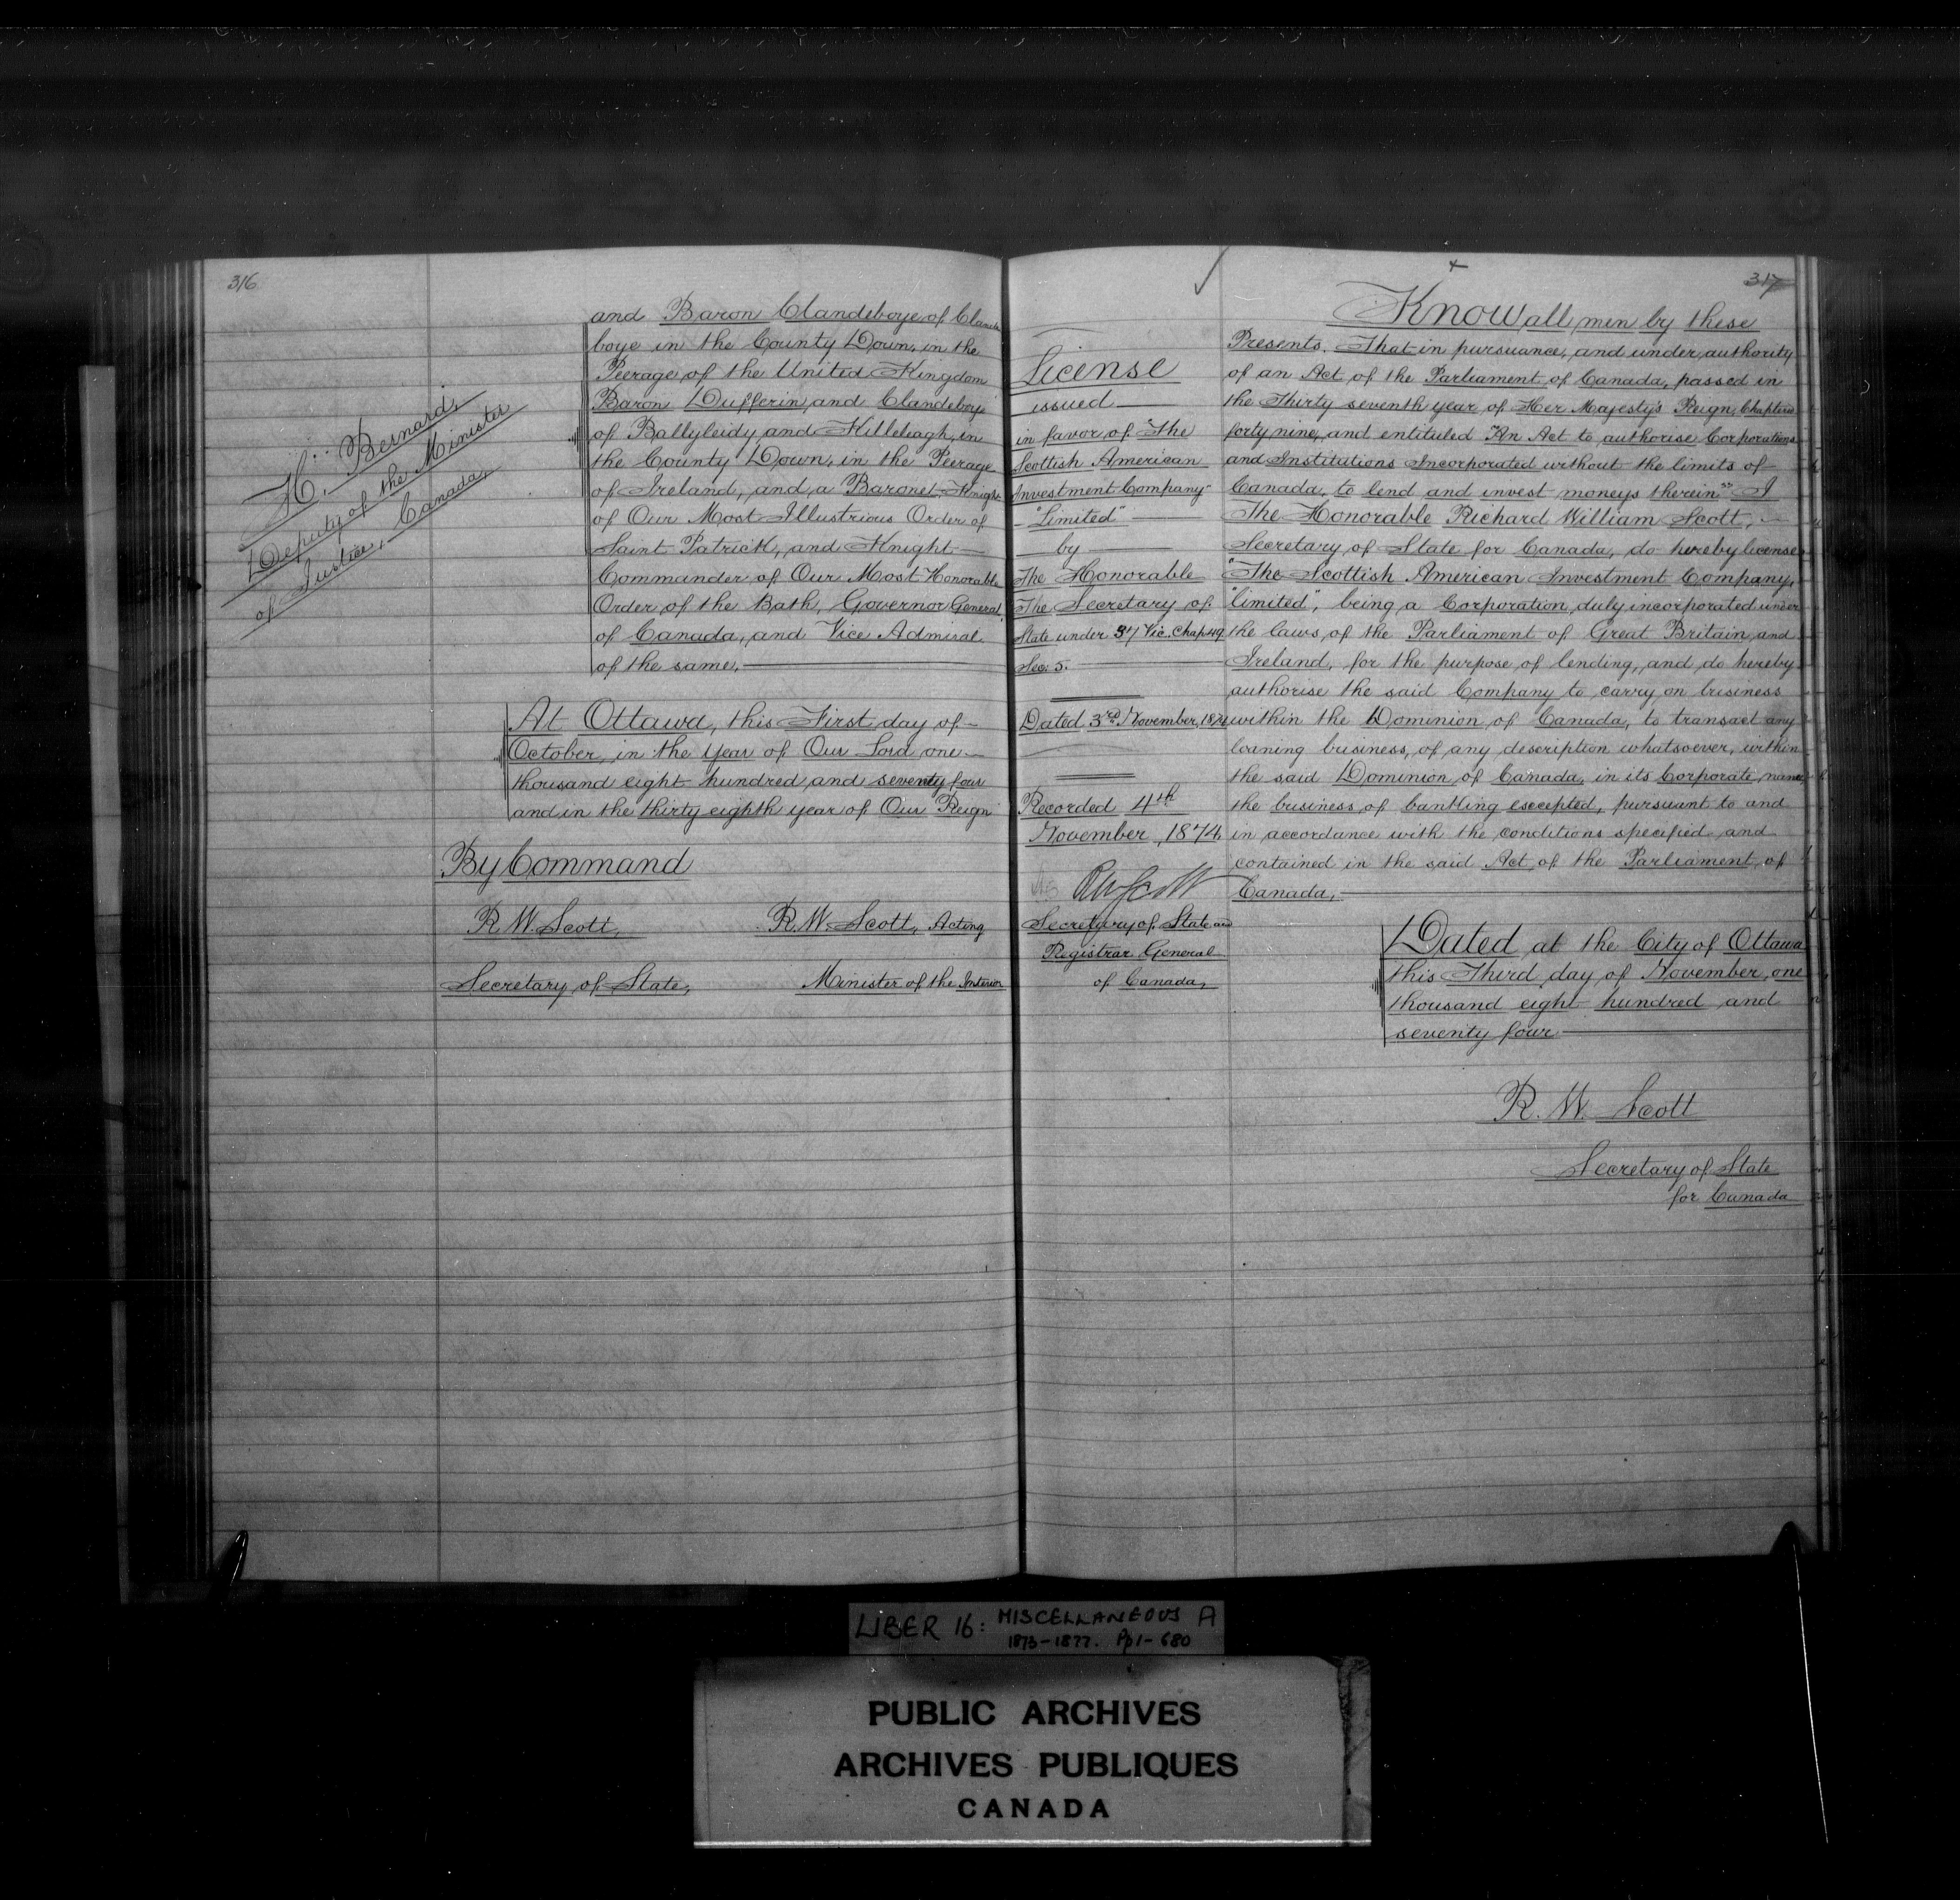 316
H. Bernard,
Deputy of the Minister
of Justice, Canada,
and Baron Clandeboye of Clande
boye in the County Down, in the
Peerage of the United Kingdom
Baron Dufferin and Clandeboye
of Ballyleidy and Killeleagh, in
the County Down, in the Peerage
of Ireland, and a Baronet, Knight
of Our Most Illustrious Order of
Saint Patrick, and Knight
Commander of Our Most Honorable
Order of the Bath, Governor General
of Canada, and Vice Admiral
of the same.
At Ottawa, this First day of
October, in the year of Our Lord one
thousand eight hundred and seventy four
and in the thirty eighth year of Our Reign
By Command
R. W. Scott, R. W. Scott, Acting
Secretary of State, Minister of the Interior
317
License
issued
in favor of "The
Scottish American
Investment Company
"Limited"
by
The Honorable
The Secretary of
State under 37 Vic. Chap 49
Sec: 5.
Dated 3rd November, 1874
Recorded 4th
November, 1874
RWScott
Secretary of State and
Registrar General
of Canada,
Know all men by these
Presents. That in pursuance, and under authority
of an Act of the Parliament of Canada, passed in
the Thirty seventh year of Her Majesty's Reign, Chaptered
forty nine, and entituled "An Act to authorise Corporations
and Institutions Incorporated without the limits of
Canada, to lend and invest moneys therein" I
The Honorable Richard William Scott,
Secretary of State for Canada, do hereby license
"The Scottish American Investment Company,
"limited", being a Corporation duly incorporated under
the laws of the Parliament of Great Britain and
Ireland, for the purpose of lending, and do hereby
authorise the said Company to carry on business
within the Dominion of Canada, to transact any
loaning business, of any description whatsoever, within
the said Dominion of Canada, in its Corporate name,
the business of banking excepted, pursuant to and
in accordance with the conditions specified and
contained in the said Act of the Parliament of
Canada,
Dated at the City of Ottawa
this Third day of November, one
thousand eight hundred and
seventy four
R. W. Scott
Secretary of State
for Canada
LIBER 16: MISCELLANEOUS A
1873-1877. Pp 1-680
PUBLIC ARCHIVES
ARCHIVES PUBLIQUES
CANADA